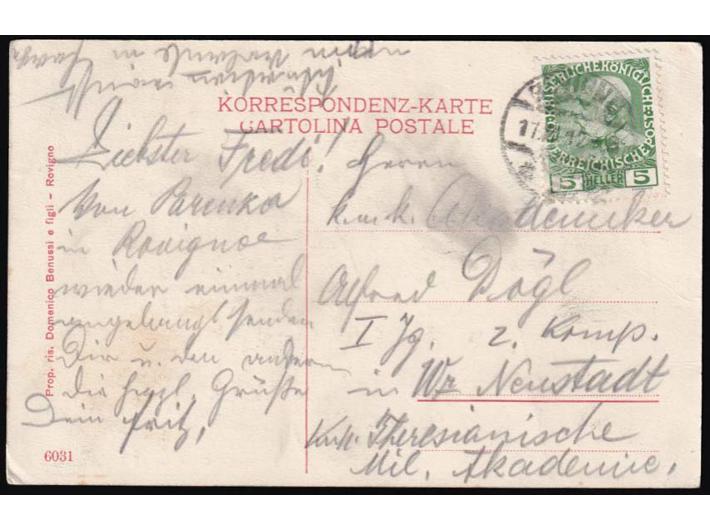 KORRESPONDENZ-KARTE
CARTOLINA POSTALE
Liebster Fredi!
Von Parenka
in Rovignoe
wieder einmal
angelangt senden
Dir u. den andern
die herzl. Grüße
Dein Fritz,
Herrn
k.u.k. Akademiker
Alfred Dögl
I Jg. 2. Komp.
in Wr Neustadt
K.u.k. Theresianische
Mil. Akademie,
KAISERLICHEKÖNIGLICHE
ÖSTERREICHISCHE POST
5 HELLER 5
Prop. ris. Domenico Benussi e figli - Rovigno
6031